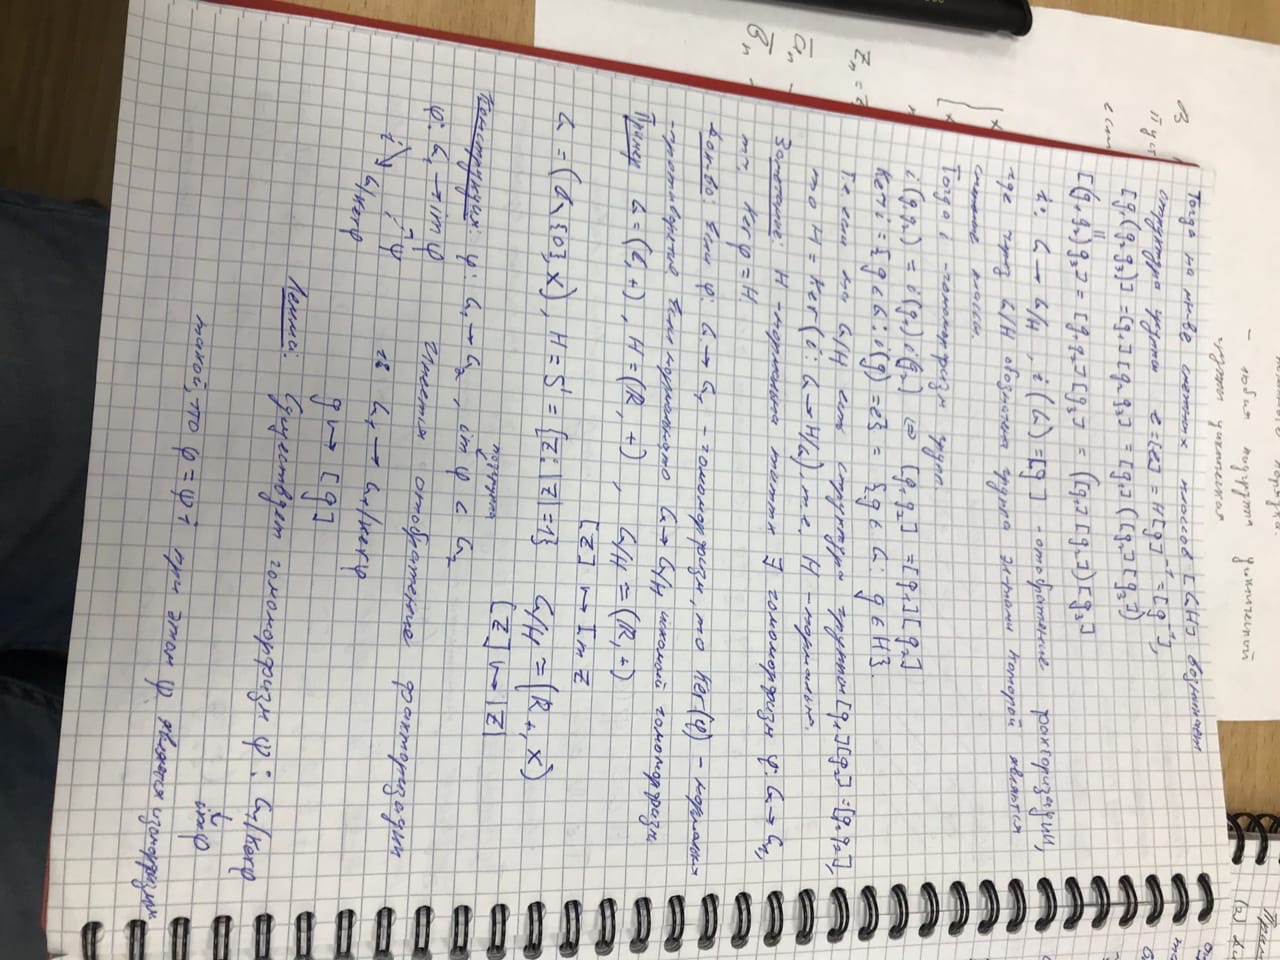 - любая подгруппа циклической
группы циклическая
В
Пуст
есл
Тогда на мн-ве смежных классов [GH] возникает
структура группы e=[e] = H [g]⁻¹ = [g⁻¹],
[g₁(g₂g₃)] = [g₁][g₂g₃] = [g₁]([g₂][g₃])
[(g₁g₂)g₃] = [g₁g₂][g₃] = ([g₁][g₂])[g₃]
i: G → G/H, i(G) = [g] - отображение факторизации,
где через G/H обозначена группа эл-тами которой являются
смежные классы.
Тогда i - гомоморфизм групп.
i(g₁g₂) = i(g₁) i(g₂) ⇔ [g₁g₂] = [g₁][g₂]
Ker i = {g ∈ G: i(g) = e} = {g ∈ G: g ∈ H}.
Т.е. если на G/H есть структура группы [g₁][g₂] = [g₁g₂],
то H = Ker(i: G → H/G), т.е. H - нормальн.
Замечание: H - нормальна титтк ∃ гомоморфизм φ: G → G₁,
тч. Ker φ = H.
Док-во: Если φ: G → G₁ - гомоморфизм, то Ker(φ) - нормальна
-противоречие Если нормальна то G → G/H искомый гомоморфизм
Пример G = (C, +), H = (R, +), G/H ≃ (R, +)
[z] ↦ Im z
G = (C\{0}, ×), H = S¹ = {z: |z| = 1} G/H ≃ (R₊, ×)
[z] ↦ |z|
подгруппа
Конструкция: φ: G₁ → G₂, im φ < G₂
φ: G₁ → im φ Имеется отображение факторизации
i ψ i: G₁ → G₁/Ker φ
G/Ker φ
g ↦ [g]
Лемма: Существует гомоморфизм ψ: G₁/Ker φ
↓
im φ
такой, что φ = ψ i при этом ψ является изоморфизмом